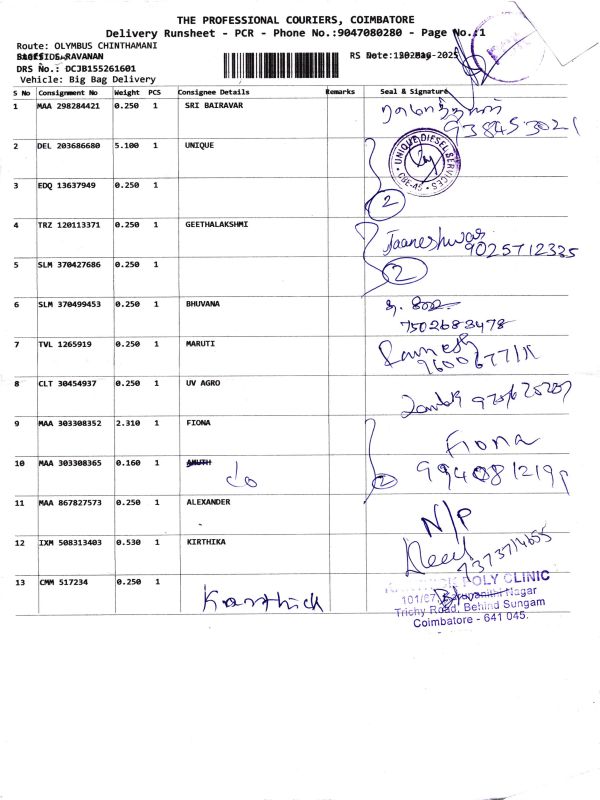 THE PROFESSIONAL COURIERS, COIMBATORE
Delivery Runsheet - PCR - Phone No.:9047080280 - Page No.:1
Route: OLYMBUS CHINTHAMANI
RAVANAN
DRS No.: DCJB155261601
Vehicle: Big Bag Delivery
RS Date: -2025
S No Consignment No Weight PCS Consignee Details Remarks Seal & Signature
1 MAA 298284421 0.250 1 SRI BAIRAVAR
938453021
2 DEL 203686680 5.100 1 UNIQUE
UNIQUE DIESEL SERVICES
CBE-45
2
3 EDQ 13637949 0.250 1
4 TRZ 120113371 0.250 1 GEETHALAKSHMI
Jaaneshwar
9025712335
2
5 SLM 370427686 0.250 1
6 SLM 370499453 0.250 1 BHUVANA
7502683478
7 TVL 1265919 0.250 1 MARUTI
8 CLT 30454937 0.250 1 UV AGRO
9 MAA 303308352 2.310 1 FIONA
Fiona
2
10 MAA 303308365 0.160 1 AMUTH
do
11 MAA 867827573 0.250 1 ALEXANDER
N/P
12 IXM 508313403 0.530 1 KIRTHIKA
7373714655
13 CMM 517234 0.250 1
Karthick
POLY CLINIC
Nagar
Trichy Road, Behind Sungam
Coimbatore - 641 045.